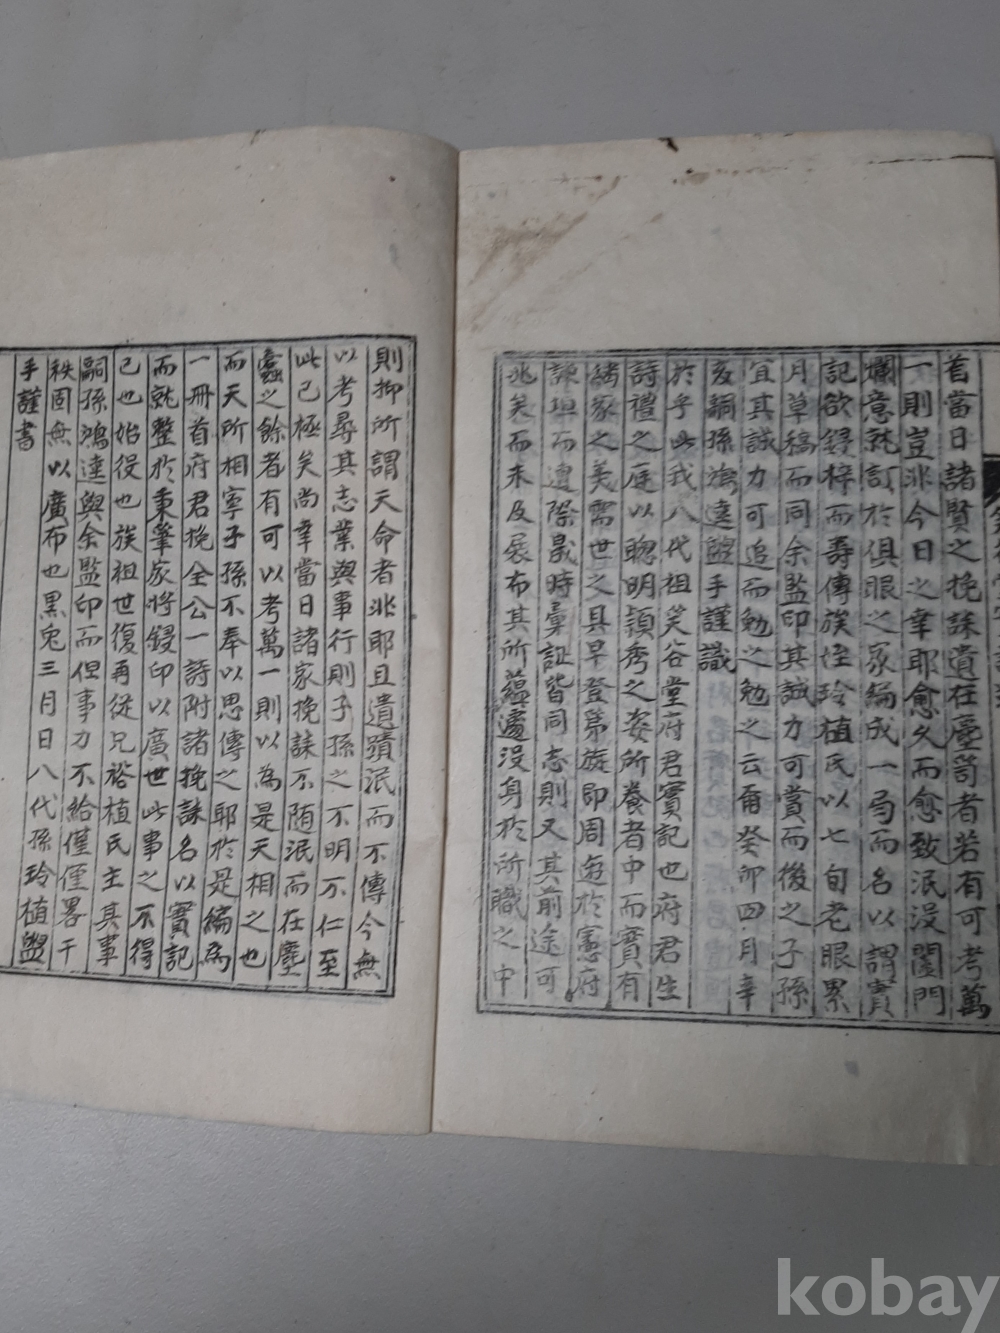 舊當日諸賢之挽誄遺在塵笥者若有可考萬
一則豈非今日之幸耶愈久而愈致泯沒闔門
爛意就訂於俱眼之家編成一局而名以謂實
記欲鋟梓而壽傳族姪玲植氏以七旬老眼累
月草稿而同余監印其誠力可賞而後之子孫
宜其誠力可追而勉之勉之云爾癸卯四月辛
亥嗣孫鴻達盥手謹識
於乎此我八代祖笑谷堂府君實記也府君生
詩禮之庭以聰明穎秀之姿所養者中而實有
緒家之美需世之具早登第旋即周遊於憲府
諫垣而遭際晟時彙証皆同志則又其前途可
兆矣而未及展布其所蘊遽沒身於所職之中
則抑所謂天命者非耶且遺蹟泯而不傳今無
以考尋其志業與事行則子孫之不明不仁至
此已極矣尚幸當日諸家挽誄不随泯而在塵
蠹之餘者有可以考萬一則以為是天相之也
而天所相寧子孫不奉以思傳之耶於是編為
一冊首府君挽全公一詩附諸挽誄名以實記
而就整於秉筆家將鋟印以廣世此事之不得
已也始役也族祖世復再從兄裕植氏主其事
嗣孫鴻達與余監印而但事力不給僅僅畧干
秩固無以廣布也黑兎三月日八代孫玲植盥
手謹書
kobay